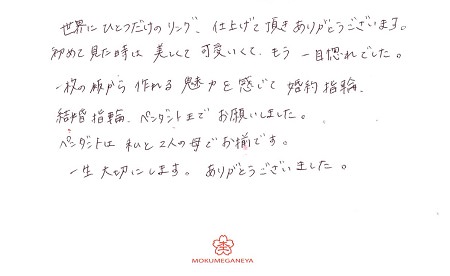 世界にひとつだけのリング、仕上げて頂きありがとうございます。
初めて見た時は美しくて可愛いくて、もう一目惚れでした。
一枚の板から作れる魅力を感じて婚約指輪、
結婚指輪、ペンダントまでお願いしました。
ペンダントは私と2人の母でお揃です。
一生大切にします。ありがとうございました。
MOKUMEGANEYA